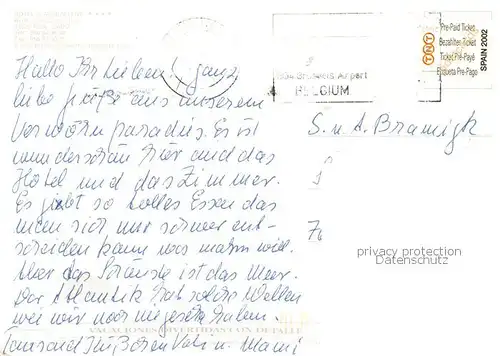 Hallo Ihr Lieben! ganz
liebe Grüße aus unserem
Verwöhnparadies. Es ist
wunderschön hier und das
Hotel und das Zimmer.
Es gibt so tolles Essen das
man sich nur schwer ent-
scheiden kann was mann will.
Aber das Schönste ist das Meer.
Der Atlantik hat solche Wellen
wie wir noch nie gesehn haben.
Tausend Küßchen Vati u. Mami
VACACIONES DIVERTIDAS
1934 Brussels Airport
BELGIUM
TNT
Pre-Paid Ticket
Bezahlter Ticket
Ticket Pre-Payé
Etiqueta Pre-Pago
SPAIN 2002
S. u. A. Bramigk
privacy protection
Datenschutz